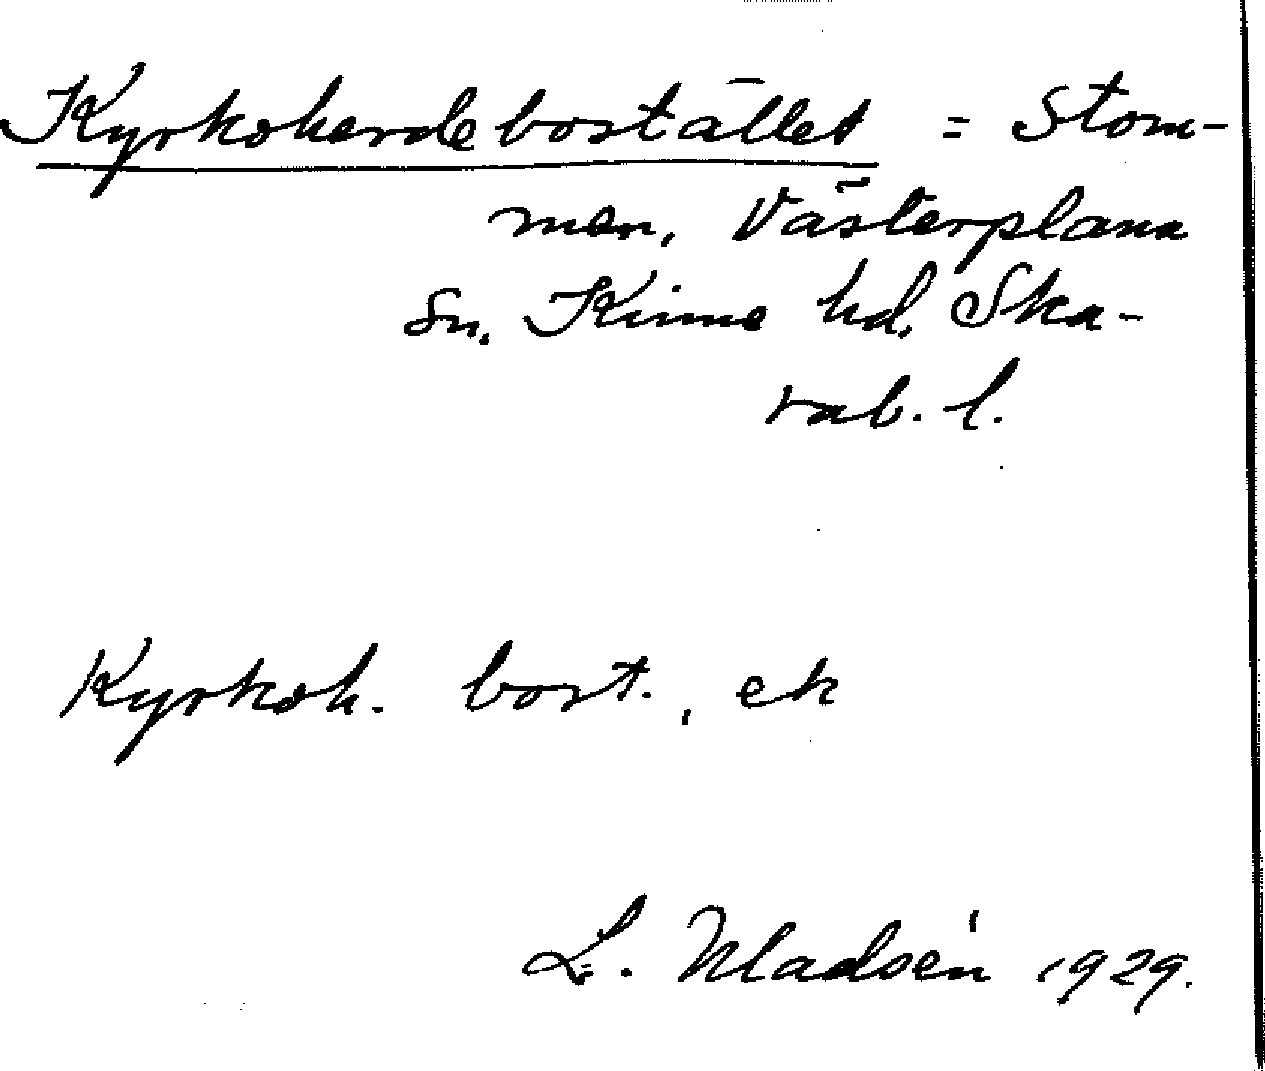 Kyrkoherdebostället = Stom-
men, Västerplana
Sn. Kinne hd. Ska-
rab. l.
Kyrkoh. bost., ek
L. Uladsén 1929.